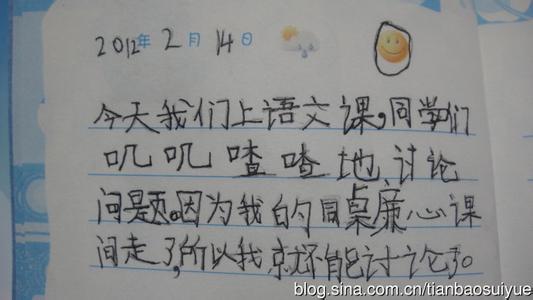 2012年 2月 14日
今天我们上语文课,同学们
叽叽喳喳地讨论
问题。因为我的同桌廉心课
间走了,所以我就不能讨论了。
blog.sina.com.cn/tianbaosuiyue